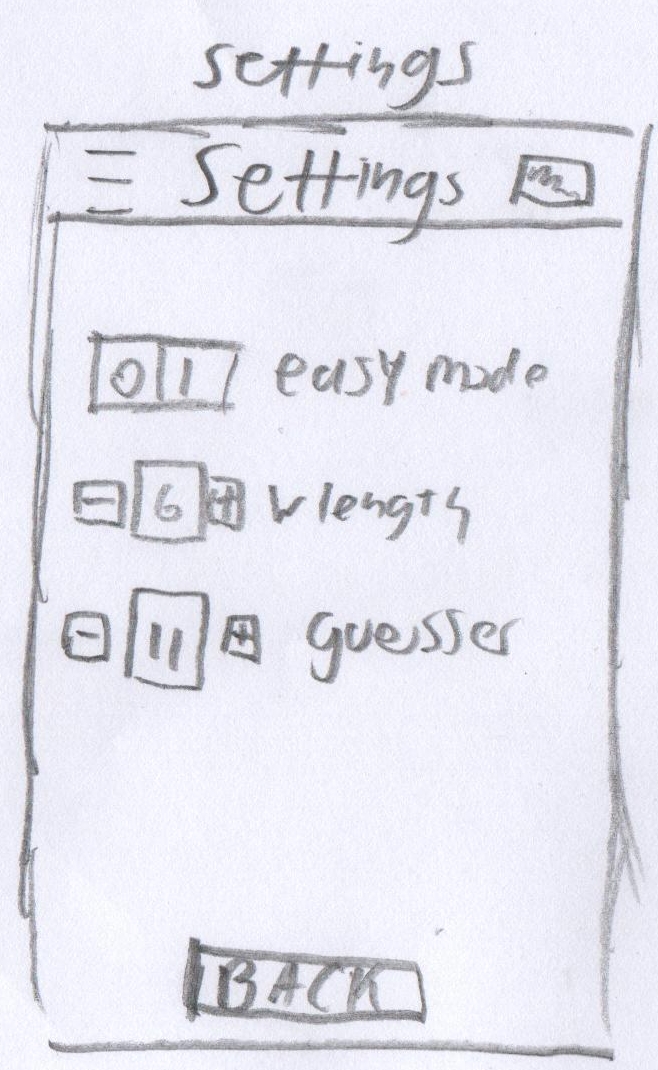 settings
Settings
0 1 easy mode
- 6 + w length
- 11 + guesser
BACK